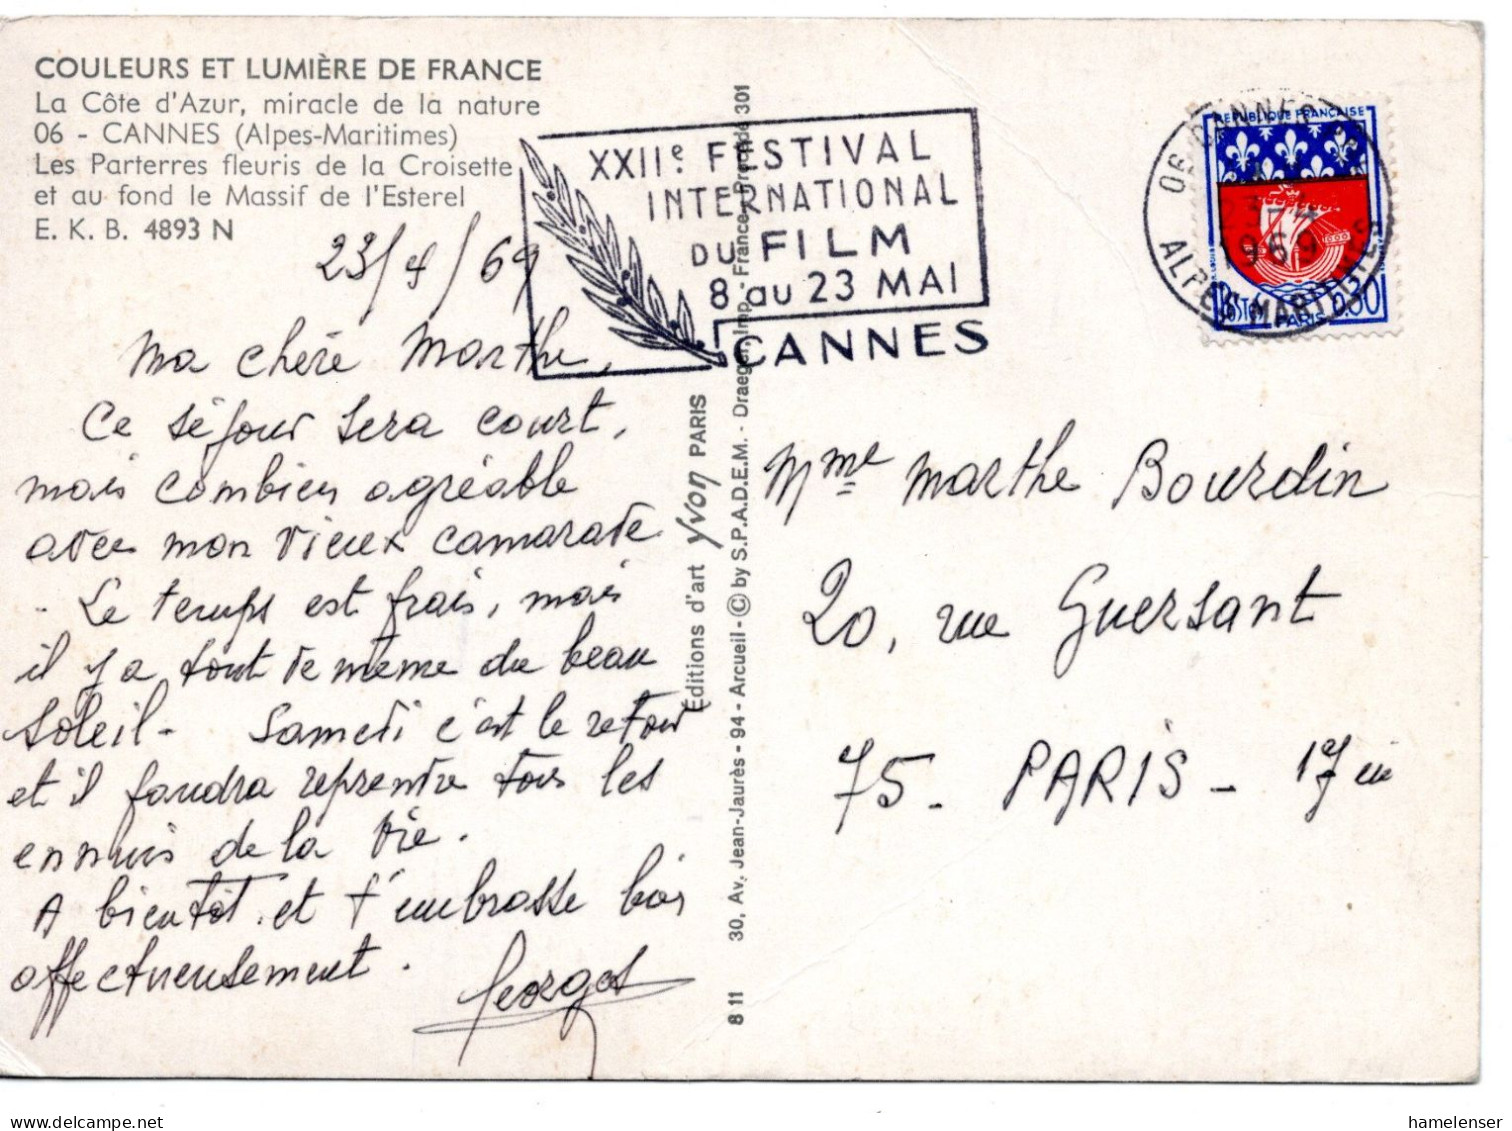 COULEURS ET LUMIÈRE DE FRANCE
La Côte d'Azur, miracle de la nature
06 - CANNES (Alpes-Maritimes)
Les Parterres fleuris de la Croisette
et au fond le Massif de l'Esterel
E. K. B. 4893 N
23/4/69
Ma chère Marthe,
Ce séjour sera court,
mais combien agréable
avec mon vieux camarade
- Le temps est frais, mais
il y a tout de même du beau
soleil - Samedi c'est le retour
et il faudra reprendre tous les
ennuis de la vie.
A bientôt et t'embrasse bien
affectueusement.
Georges
Editions d'art Yvon PARIS
30, Av. Jean-Jaurès - 94 - Arcueil - © by S.P.A.D.E.M. - Draeger, Imp. - France-Promde 301
8 11
XXIIe FESTIVAL
INTERNATIONAL
DU FILM
8 au 23 MAI
CANNES
06 CANNES
1969
ALPES MARITIMES
REPUBLIQUE FRANÇAISE
POSTES 0,30
PARIS
Mme Marthe Bourdin
20, rue Guersant
75 - PARIS - 17 eme
hamelenser.net
hamelenser